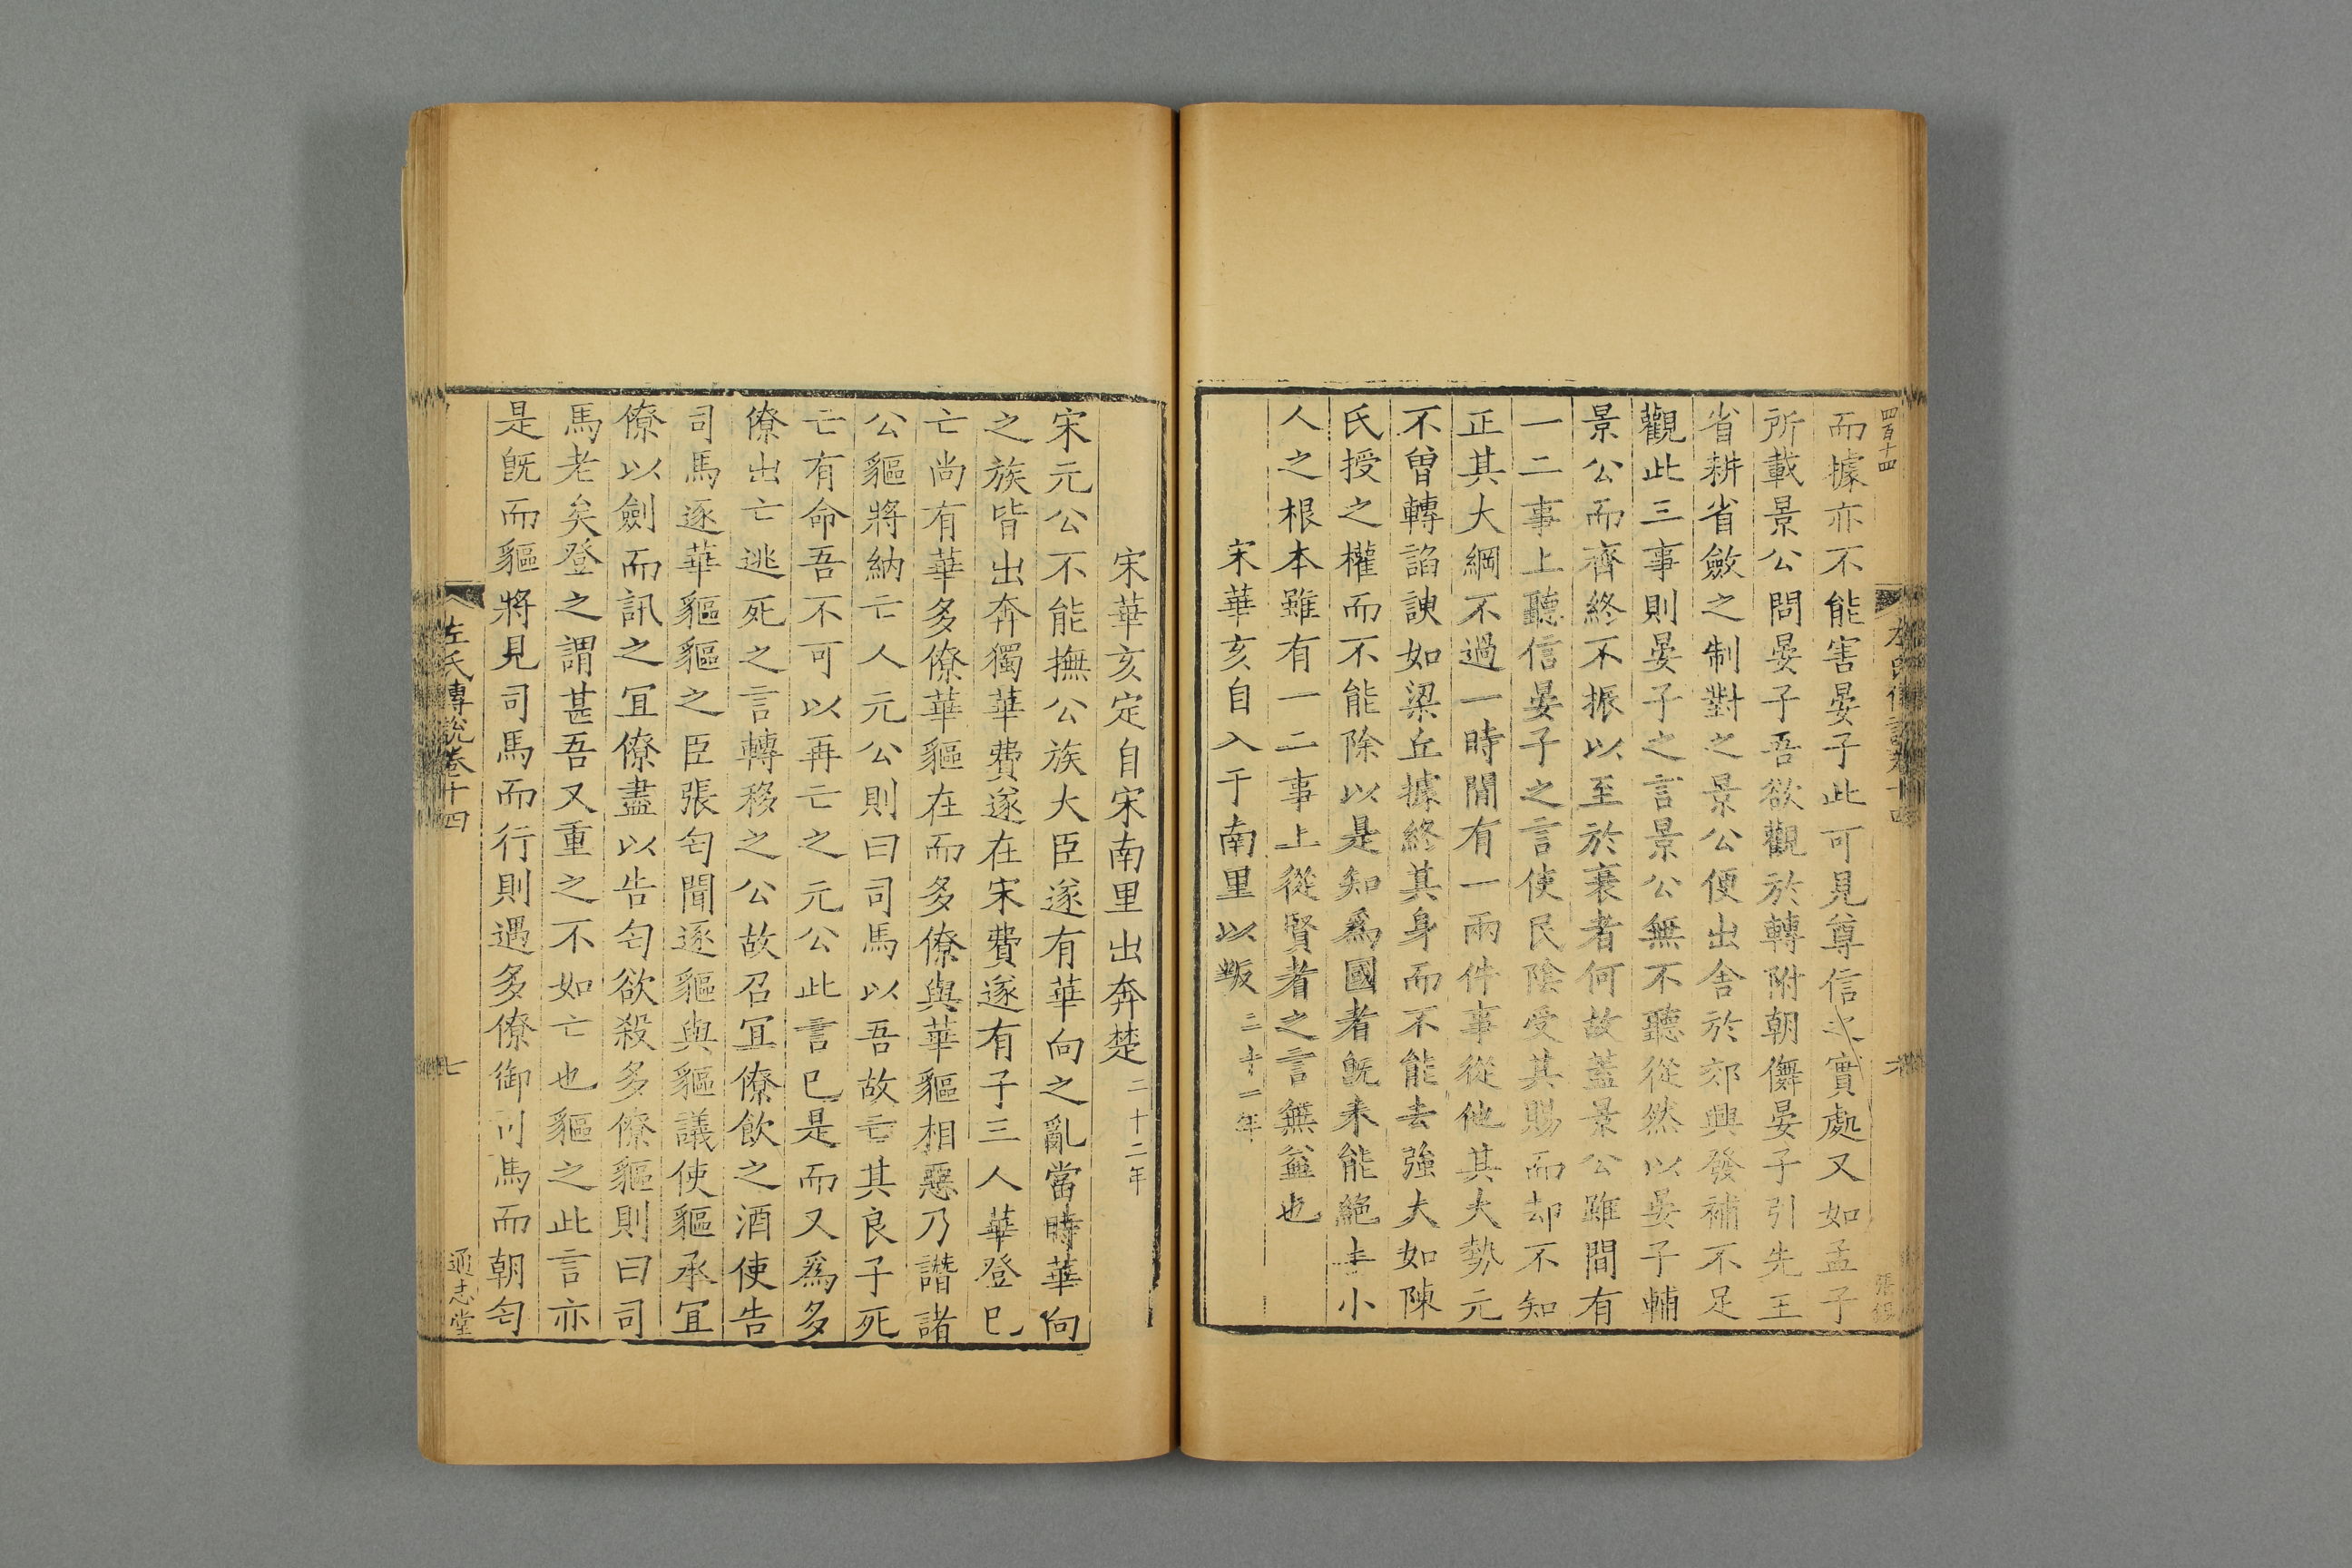 四百十四
而據亦不能害晏子此可見尊信之實處又如孟子
所載景公問晏子吾欲觀於轉附朝儛晏子引先王
省耕省斂之制對之景公便出舍於郊興發補不足
觀此三事則晏子之言景公無不聽從然以晏子輔
景公而齊終不振以至於衰者何故蓋景公雖間有
一二事上聽信晏子之言使民陰受其賜而却不知
正其大綱不過一時間有一兩件事從他其大勢元
不曾轉諂諛如梁丘據終其身而不能去強大如陳
氏授之權而不能除以是知爲國者旣未能絕去小
人之根本雖有一二事上從賢者之言無益也
宋華亥自入于南里以叛二十一年
宋華亥定自宋南里出奔楚二十二年
宋元公不能撫公族大臣遂有華向之亂當時華向
之族皆出奔獨華費遂在宋費遂有子三人華登已
亡尚有華多僚華貙在而多僚與華貙相惡乃譖諸
公貙將納亡人元公則曰司馬以吾故亡其良子死
亡有命吾不可以再亡之元公此言已是而又爲多
僚出亡逃死之言轉移之公故召宜僚飲之酒使告
司馬逐華貙貙之臣張匄聞逐貙與貙議使貙承宜
僚以劍而訊之宜僚盡以告匄欲殺多僚貙則曰司
馬老矣登之謂甚吾又重之不如亡也貙之此言亦
是旣而貙將見司馬而行則遇多僚御司馬而朝匄
左氏傳說卷十四
七
通志堂